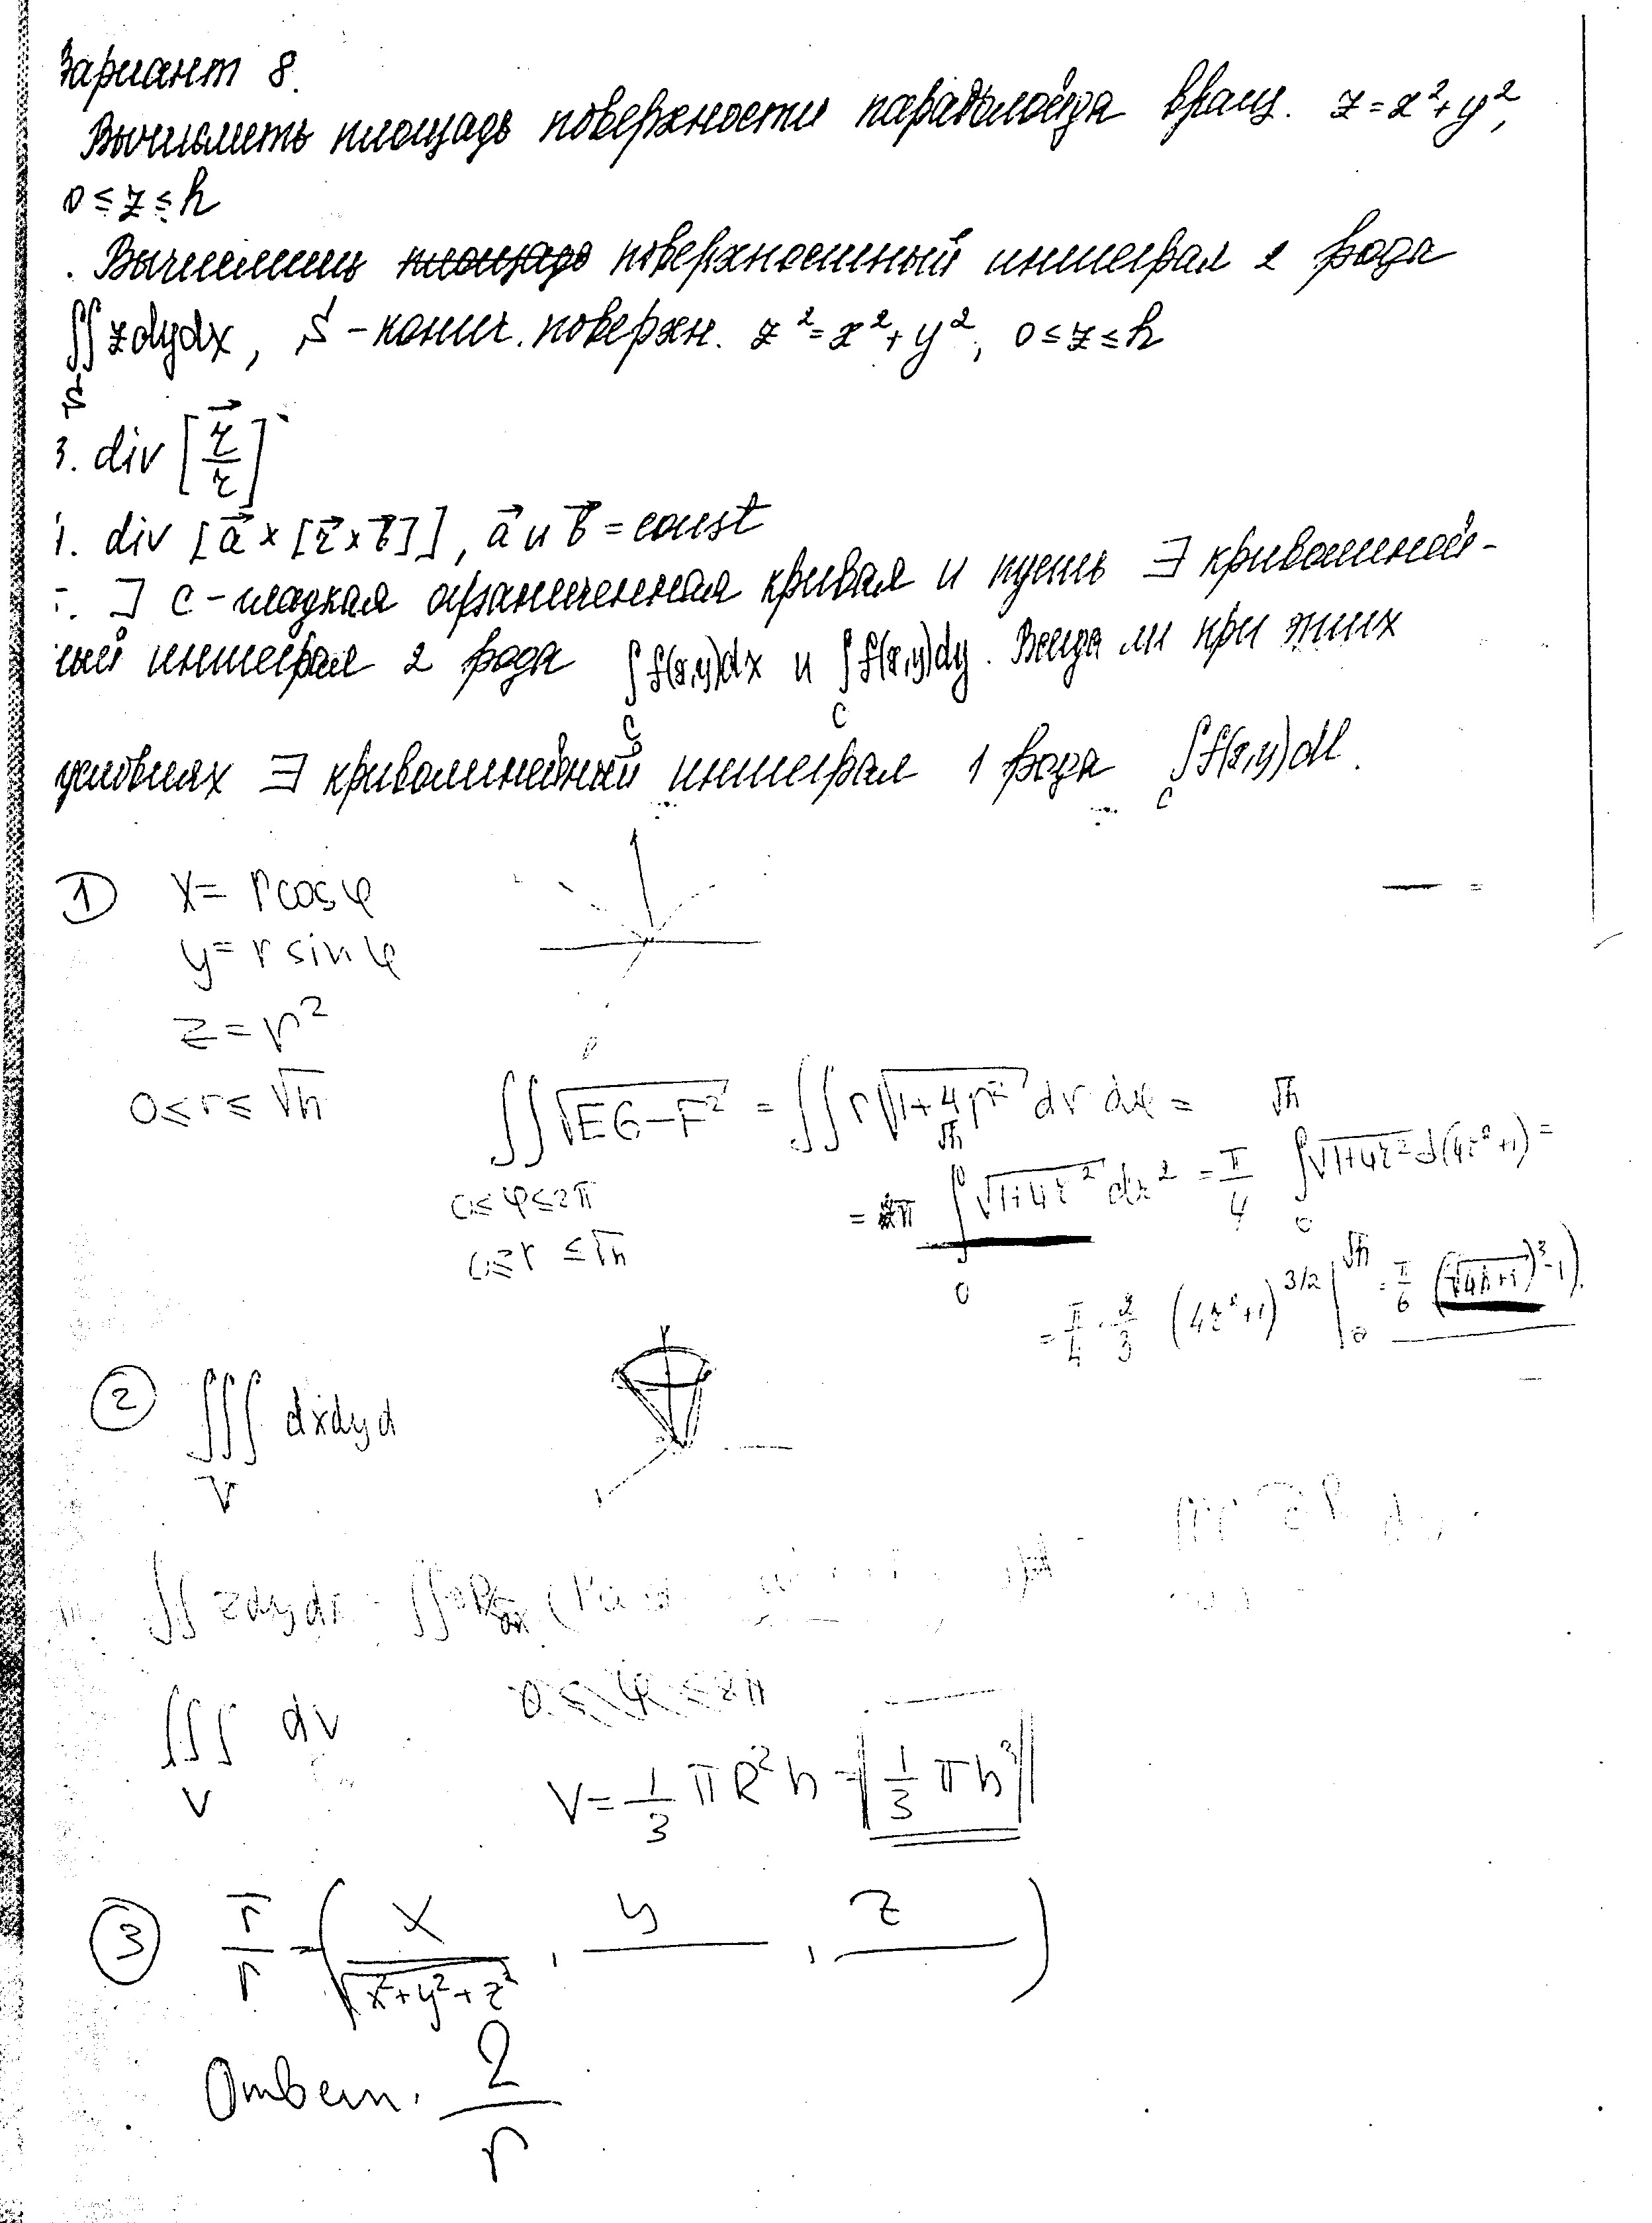 Вариант 8.
Вычислить площадь поверхности параболоида вращ. z = x² + y²,
0 ≤ z ≤ h
. Вычислить поверхностный интеграл 2 рода
∬ z dy dx, S - конич. поверхн. z² = x² + y², 0 ≤ z ≤ h
S
3. div [r⃗/r]
div [a⃗ × [r⃗ × b⃗]], a⃗ и b⃗ = const
∃ C - гладкая ограниченная кривая и пусть ∃ криволиней-
ный интеграл 2 рода ∫f(x,y)dx и ∫f(x,y)dy. Всегда ли при этих
C C
условиях ∃ криволинейный интеграл 1 рода ∫f(x,y)dl.
C
① x = r cos φ
y = r sin φ
z = r²
0 ≤ r ≤ √h
∬ √(EG − F²) = ∬ r√(1+4r²) dr dφ =
0 ≤ φ ≤ 2π
0 ≤ r ≤ √h
= π ∫₀^√h √(1+4r²) dr² = π/4 ∫₀^√h √(1+4r²) d(4r²+1) =
= π/4 · 2/3 (4r²+1)^3/2 |₀^√h = π/6 ((√(4h+1))³ − 1).
② ∭ dxdyd
V
∬ z dy dx
∭ dv
V
0 ≤ φ ≤ 2π
V = 1/3 πR²h = 1/3 πh³
③ r̄/r = (x/√(x²+y²+z²), y/, z/)
Ответ. 2/r